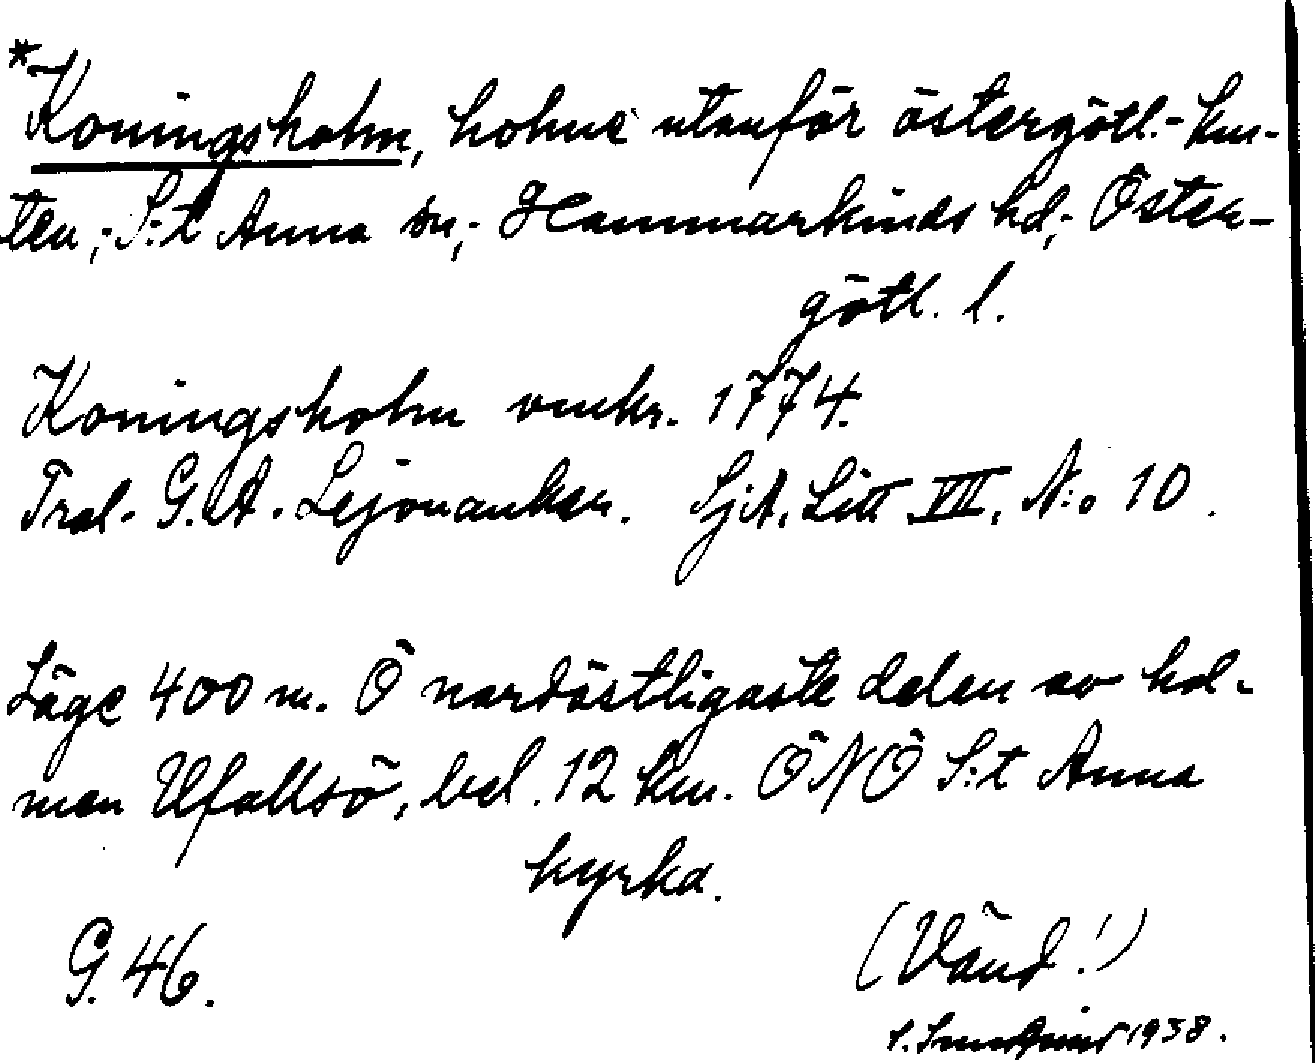 *Koningsholm, holme utanför östergötl.- kus-
ten,; S:t Anna sn,; Hammarkinds hd,; Öster-
götl. l.
Koningsholm omkr. 1774.
Trol. G. A. Lejonanker. Sjö. Litt VII, N:o 10.
Läge 400 m. Ö nordöstligaste delen av hol-
men Ufallsö, bel. 12 km. ÖNÖ S:t Anna
kyrka.
G. 46.
(Vänd!)
1938.